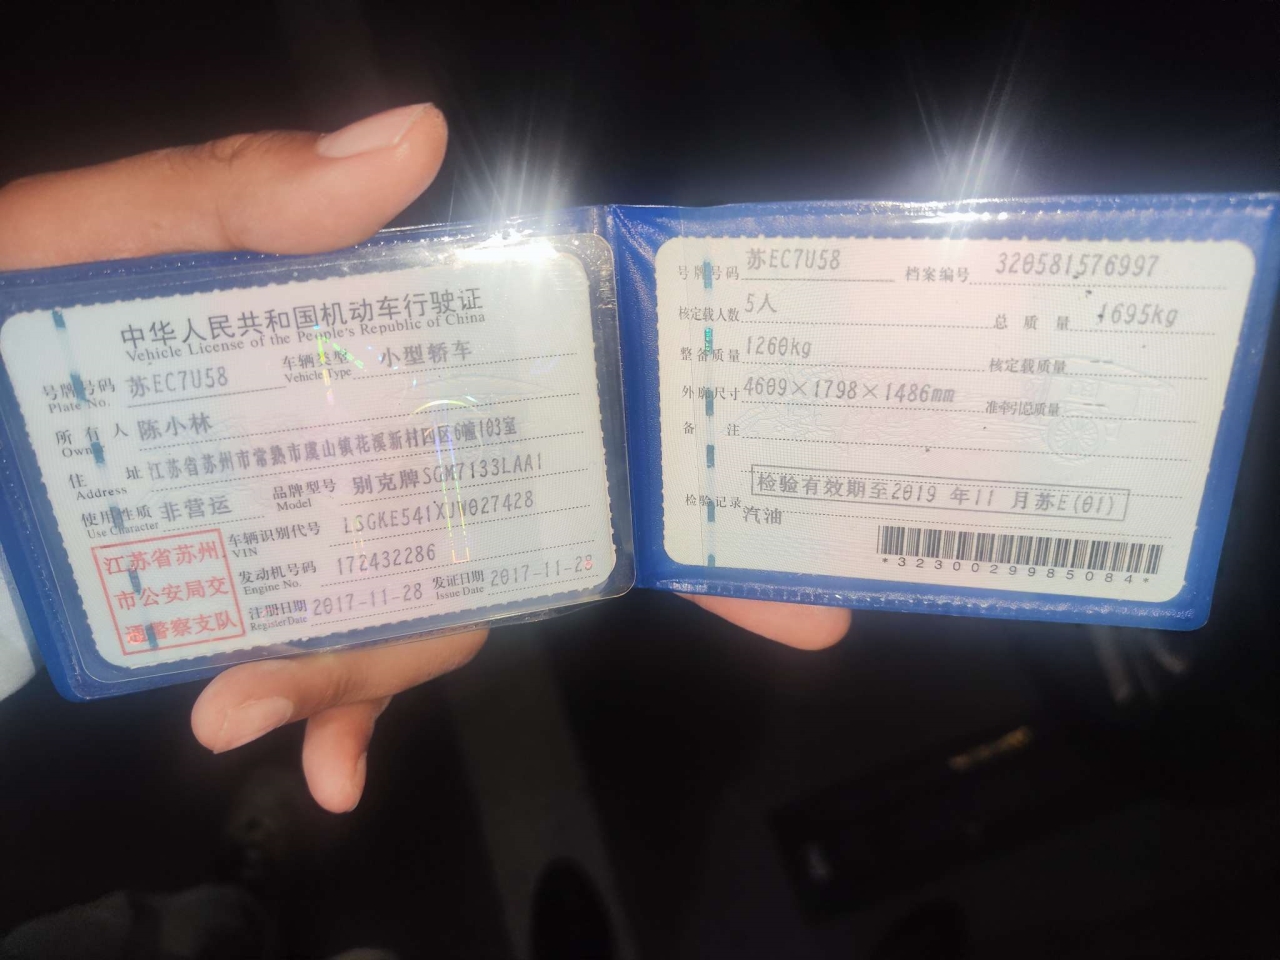 中华人民共和国机动车行驶证
Vehicle License of the People's Republic of China
号牌号码 苏EC7U58 车辆类型 小型轿车
Plate No. Vehicle Type
所有人 陈小林
Owner
住址 江苏省苏州市常熟市虞山镇花溪新村四区6幢103室
Address
使用性质 非营运 品牌型号 别克牌SGM7133LAA1
Use Character Model
车辆识别代号 LSGKE541XJW027428
VIN
发动机号码 172432286
Engine No.
注册日期 2017-11-28 发证日期 2017-11-28
Register Date Issue Date
江苏省苏州
市公安局交
通警察支队
号牌号码 苏EC7U58 档案编号 320581576997
核定载人数 5人 总质量 1695kg
整备质量 1260kg 核定载质量 --
外廓尺寸 4609×1798×1486mm 准牵引总质量 --
备注
检验有效期至2019年11月苏E(01)
检验记录
汽油
*3230029985084*